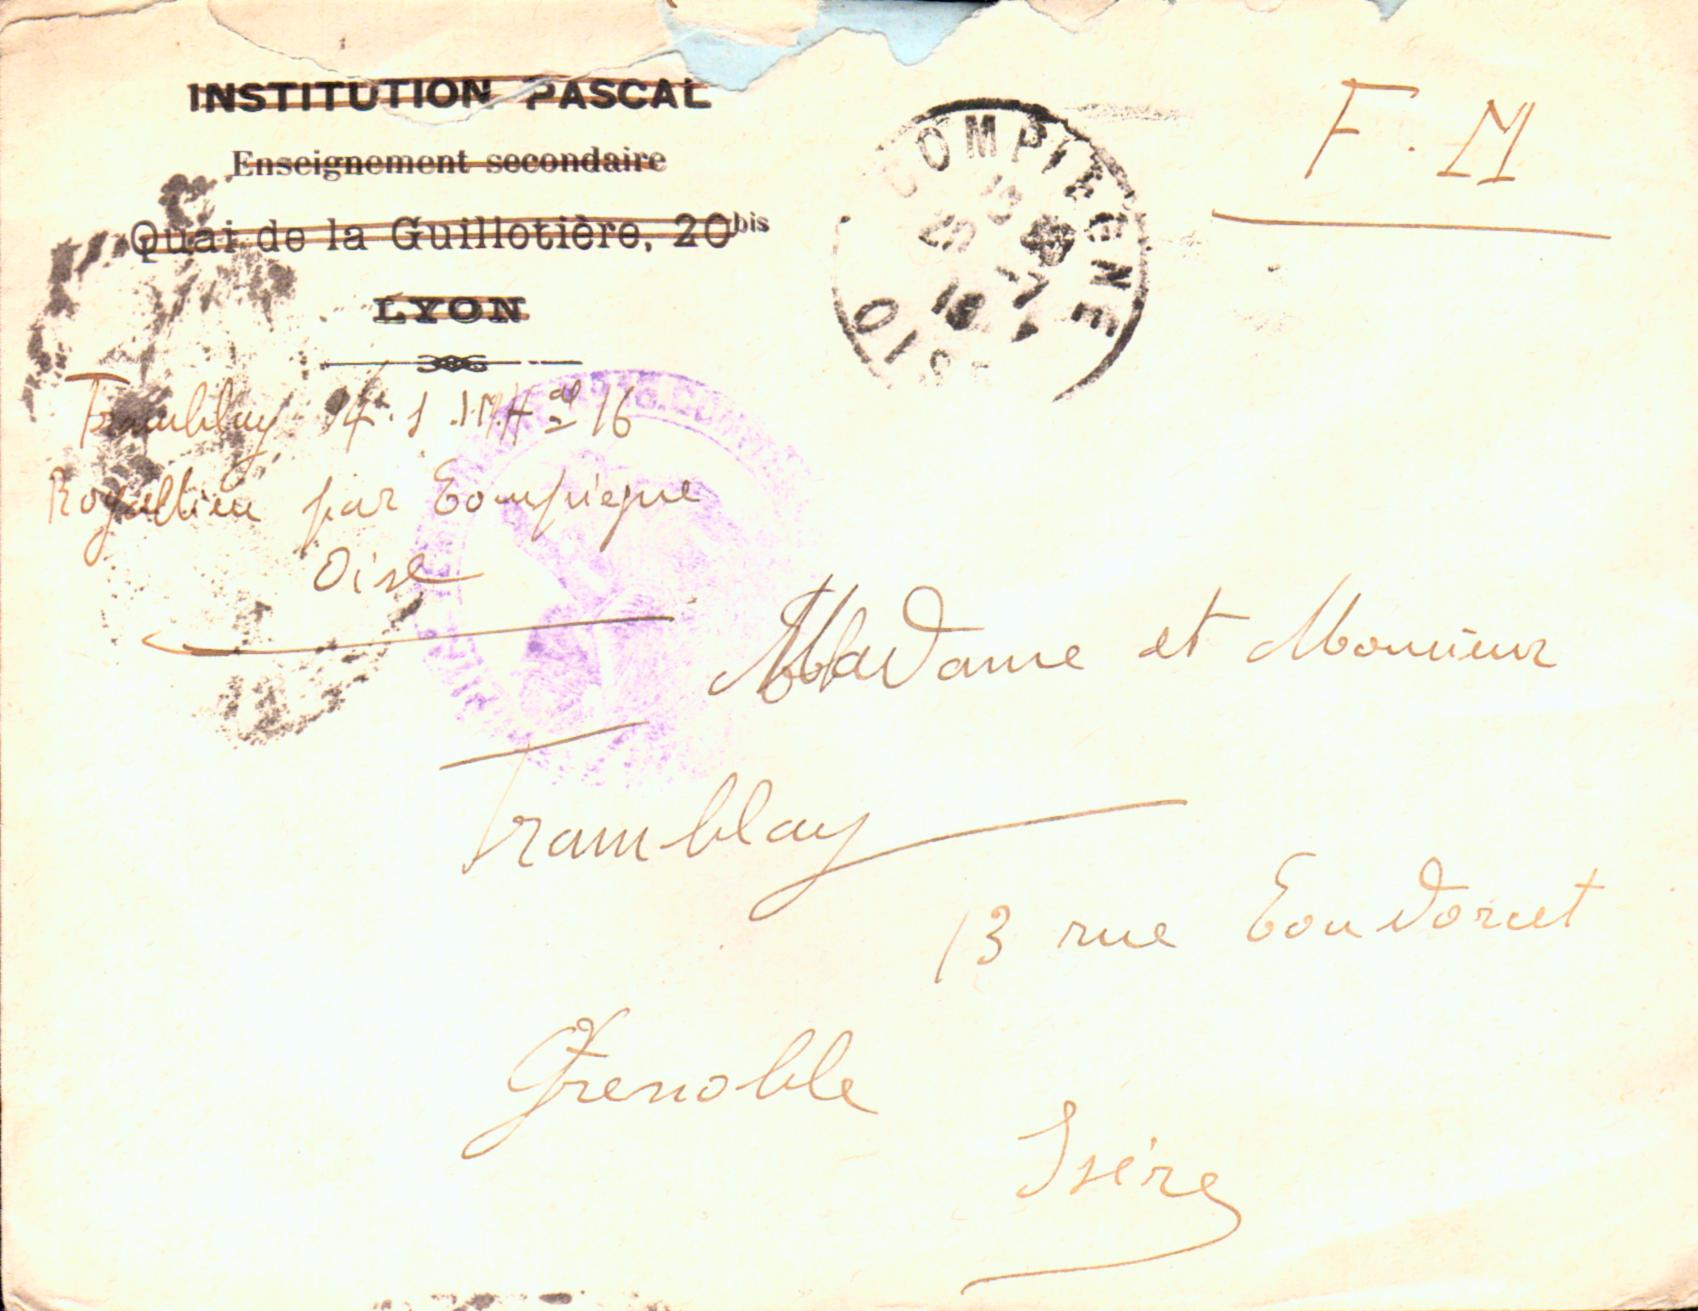 INSTITUTION PASCAL
Enseignement secondaire
Quai de la Guillotière, 20bis
LYON
COMPIEGNE
OISE
F. M
Tramblay
Royallieu par Compiègne
Oise
Madame et Monsieur
Tramblay
13 rue Condorcet
Grenoble
Isère